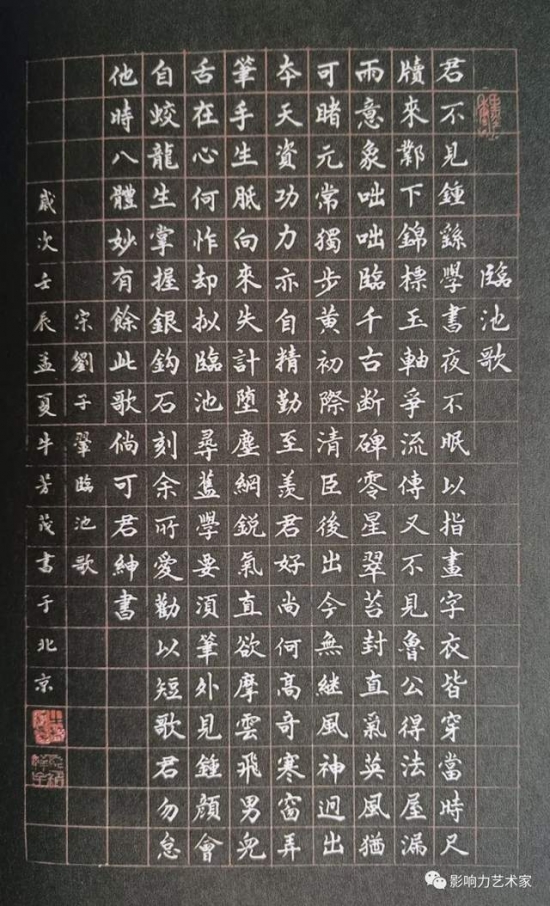 臨池歌
君不見鍾繇學書夜不眠以指畫字衣皆穿當時尺
牘來鄴下錦標玉軸爭流傳又不見魯公得法屋漏
雨意象咄咄臨千古斷碑零星翠苔封直氣英風猶
可睹元常獨步黃初際清臣後出今無継風神迥出
本天資功力亦自精勤至羨君好尚何高奇寒窗弄
筆手生胝向來失計墮塵網銳氣直欲摩雲飛男兒
舌在心何怍却拟臨池尋舊學要須筆外見鍾顏會
自蛟龍生掌握銀鈎石刻余所愛勸以短歌君勿怠
他時八體妙有餘此歌倘可君紳書
宋劉子翬臨池歌
歲次壬辰孟夏牛芳茂書于北京
影响力艺术家